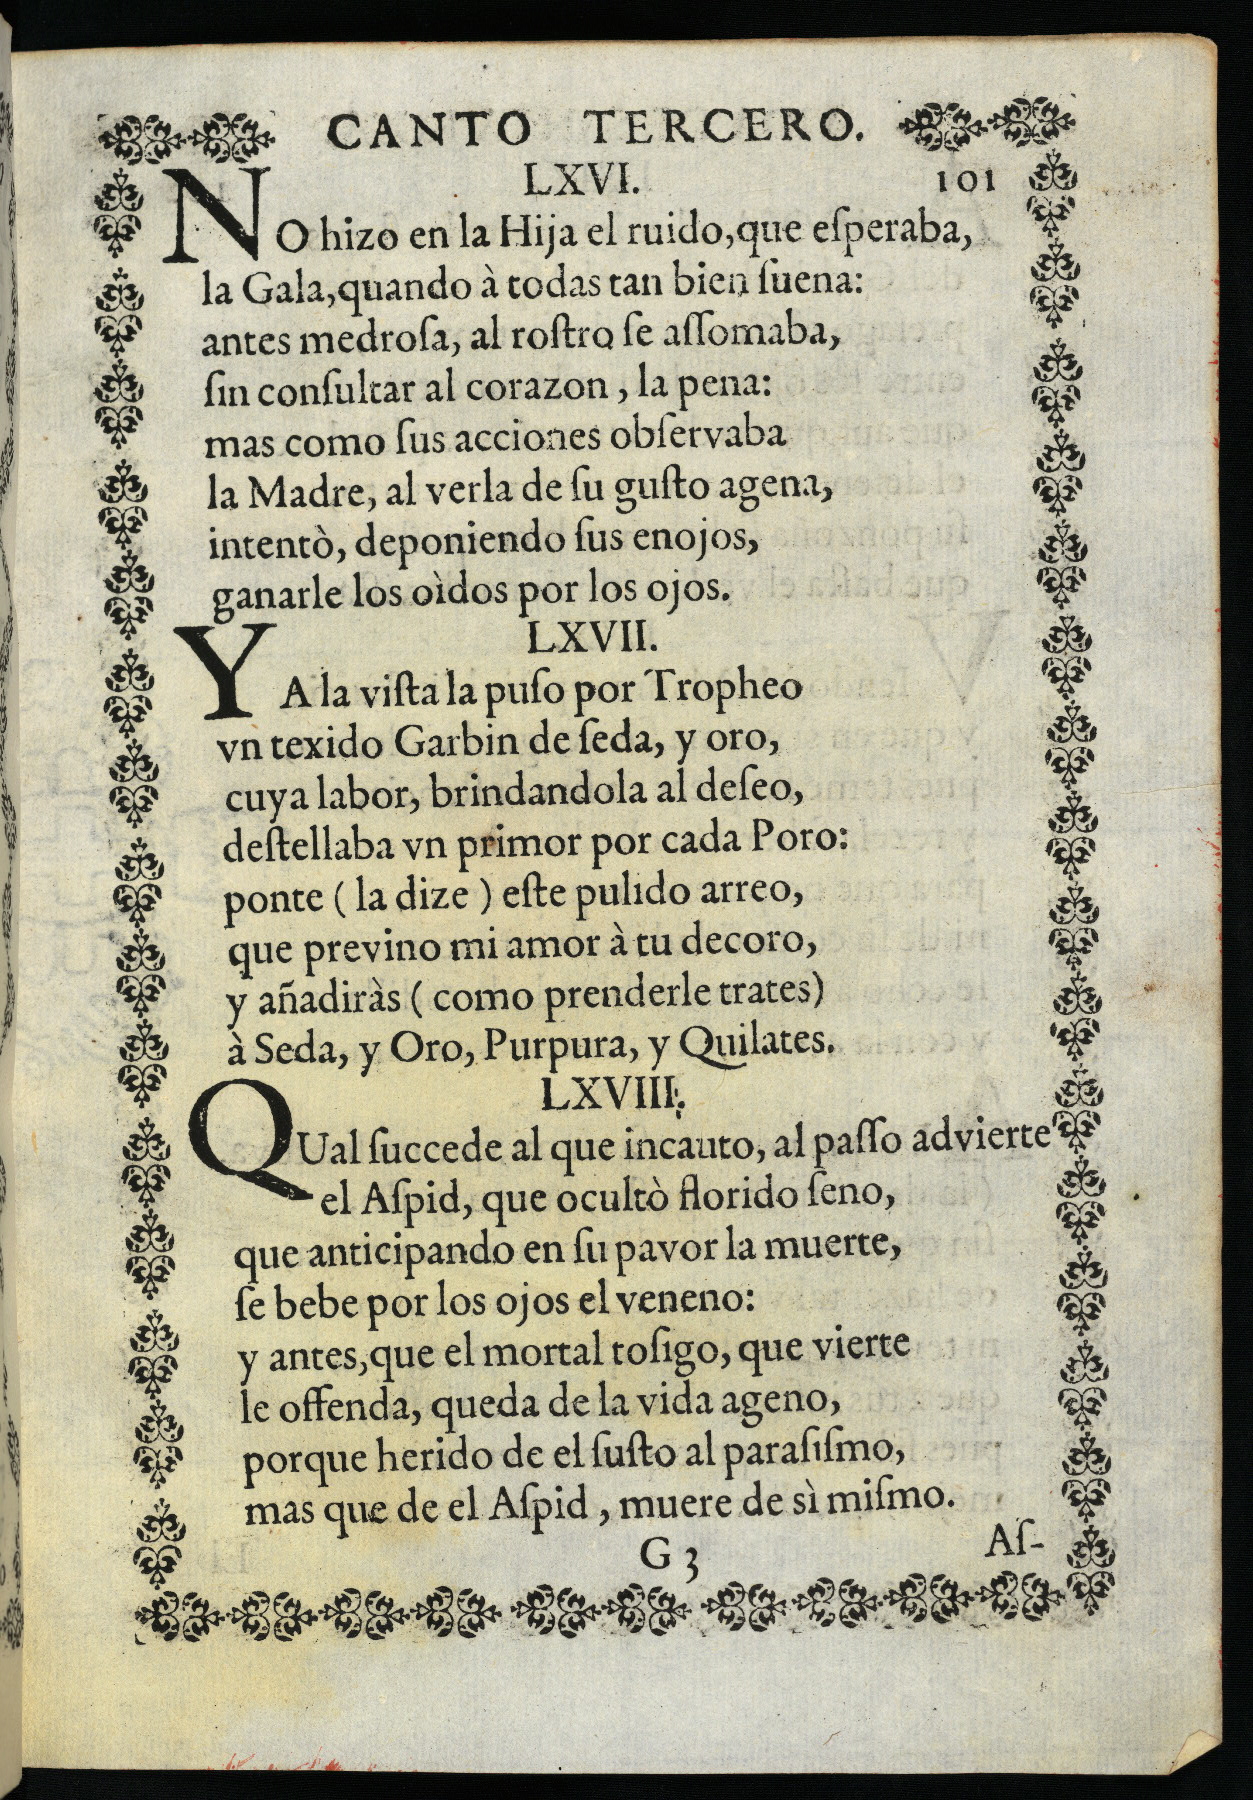 CANTO TERCERO.
LXVI. 101
NO hizo en la Hija el ruido,que eſperaba,
la Gala,quando à todas tan bien ſuena:
antes medroſa, al roſtro ſe aſſomaba,
ſin conſultar al corazon , la pena:
mas como ſus acciones obſervaba
la Madre, al verla de ſu guſto agena,
intentò, deponiendo ſus enojos,
ganarle los oìdos por los ojos.
LXVII.
YA la viſta la puſo por Tropheo
vn texido Garbin de ſeda, y oro,
cuya labor, brindandola al deſeo,
deſtellaba vn primor por cada Poro:
ponte ( la dize ) eſte pulido arreo,
que previno mi amor à tu decoro,
y añadiràs ( como prenderle trates)
à Seda, y Oro, Purpura, y Quilates.
LXVIII.
QUal ſuccede al que incauto, al paſſo advierte
el Aſpid, que ocultò florido ſeno,
que anticipando en ſu pavor la muerte,
ſe bebe por los ojos el veneno:
y antes,que el mortal toſigo, que vierte
le offenda, queda de la vida ageno,
porque herido de el ſuſto al paraſiſmo,
mas que de el Aſpid , muere de sì miſmo.
G 3 Aſ-